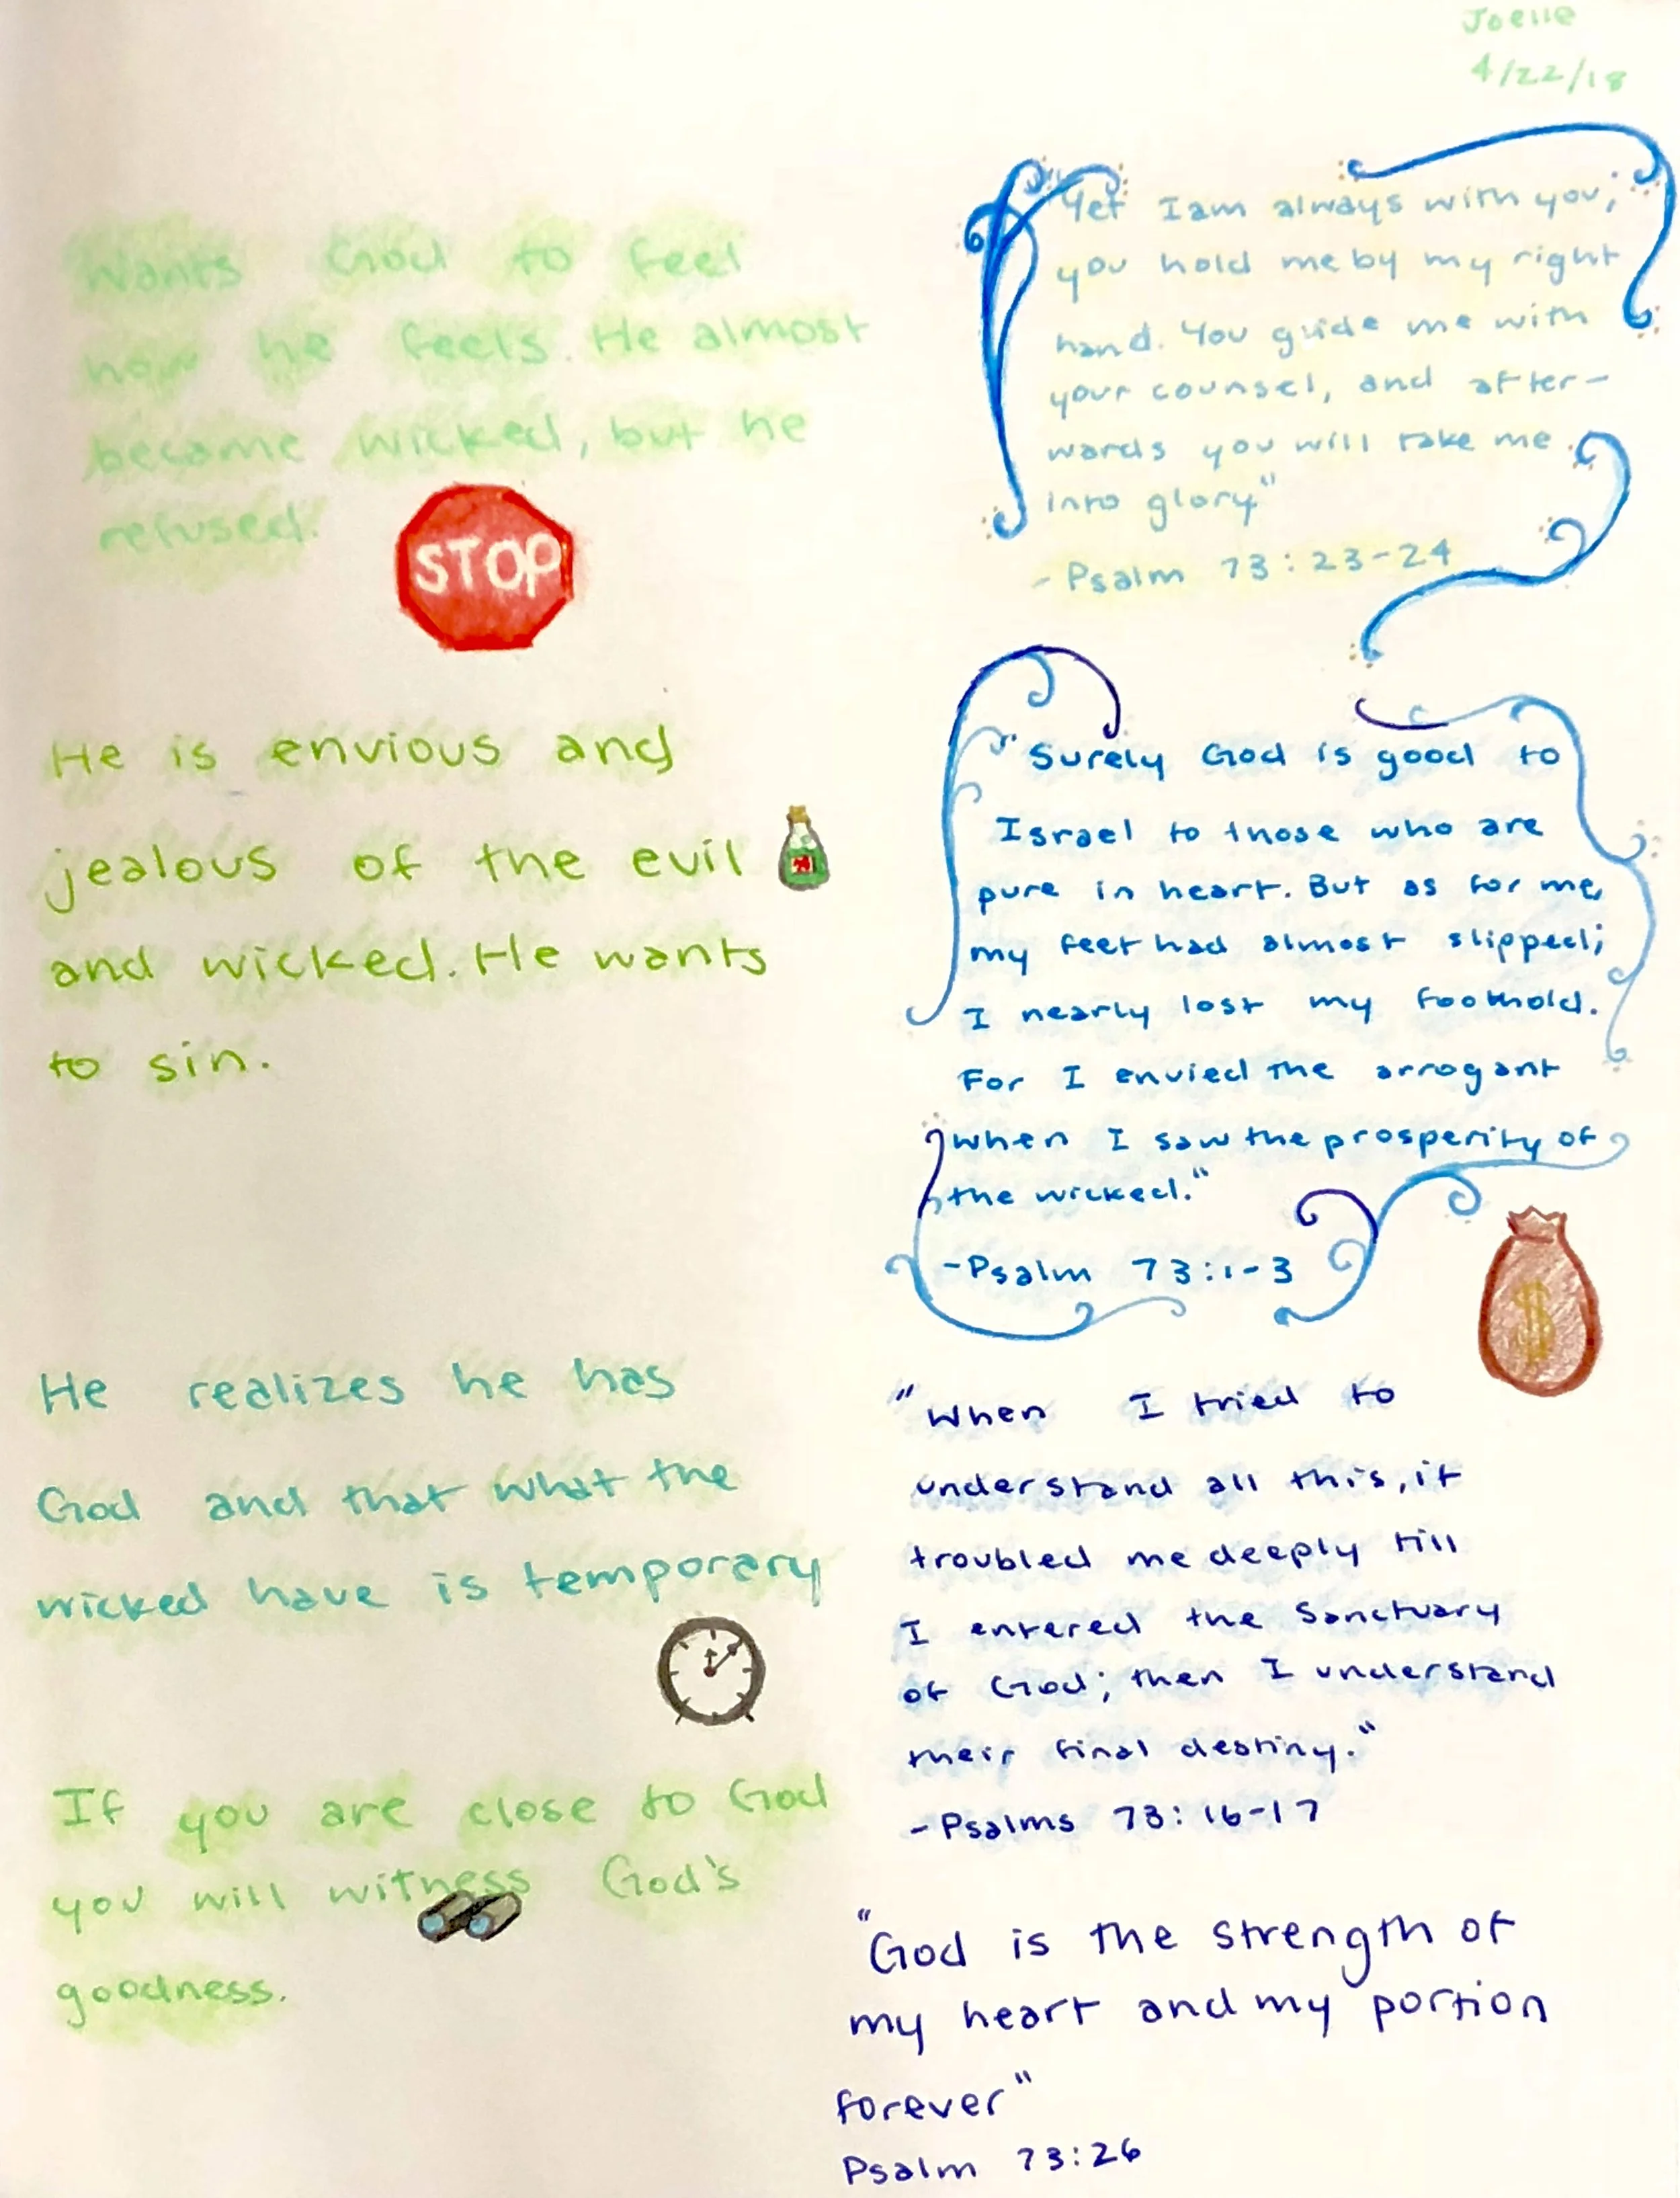 Joelle
4/22/18
Wants God to feel
how he feels. He almost
became wicked, but he
refused.
STOP
He is envious and
jealous of the evil
and wicked. He wants
to sin.
He realizes he has
God and that what the
wicked have is temporary
If you are close to God
you will witness God's
goodness.
"Yet I am always with you;
you hold me by my right
hand. You guide me with
your counsel, and after-
wards you will take me
into glory"
- Psalm 73:23-24
"Surely God is good to
Israel to those who are
pure in heart. But as for me,
my feet had almost slipped;
I nearly lost my foothold.
For I envied the arrogant
when I saw the prosperity of
the wicked."
-Psalm 73:1-3
$
"When I tried to
understand all this, it
troubled me deeply till
I entered the Sanctuary
of God; then I understand
their final destiny."
-Psalms 73: 16-17
"God is the strength of
my heart and my portion
forever"
Psalm 73:26